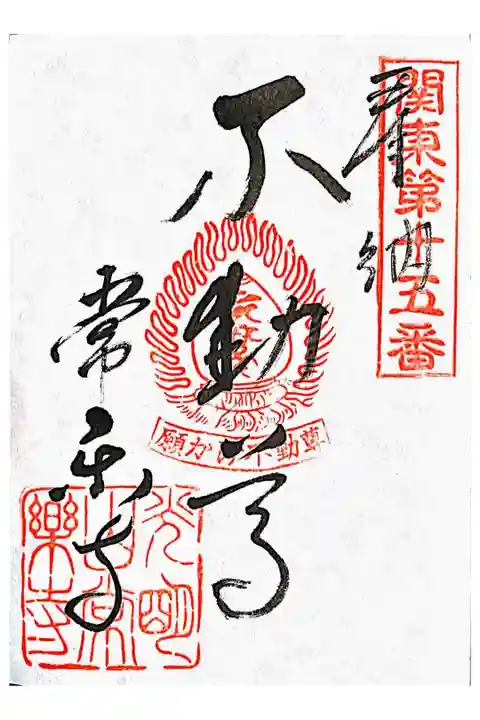 関東第廿五番
奉納
不動尊
願かけ不動尊
常楽寺
光明
山常
樂寺